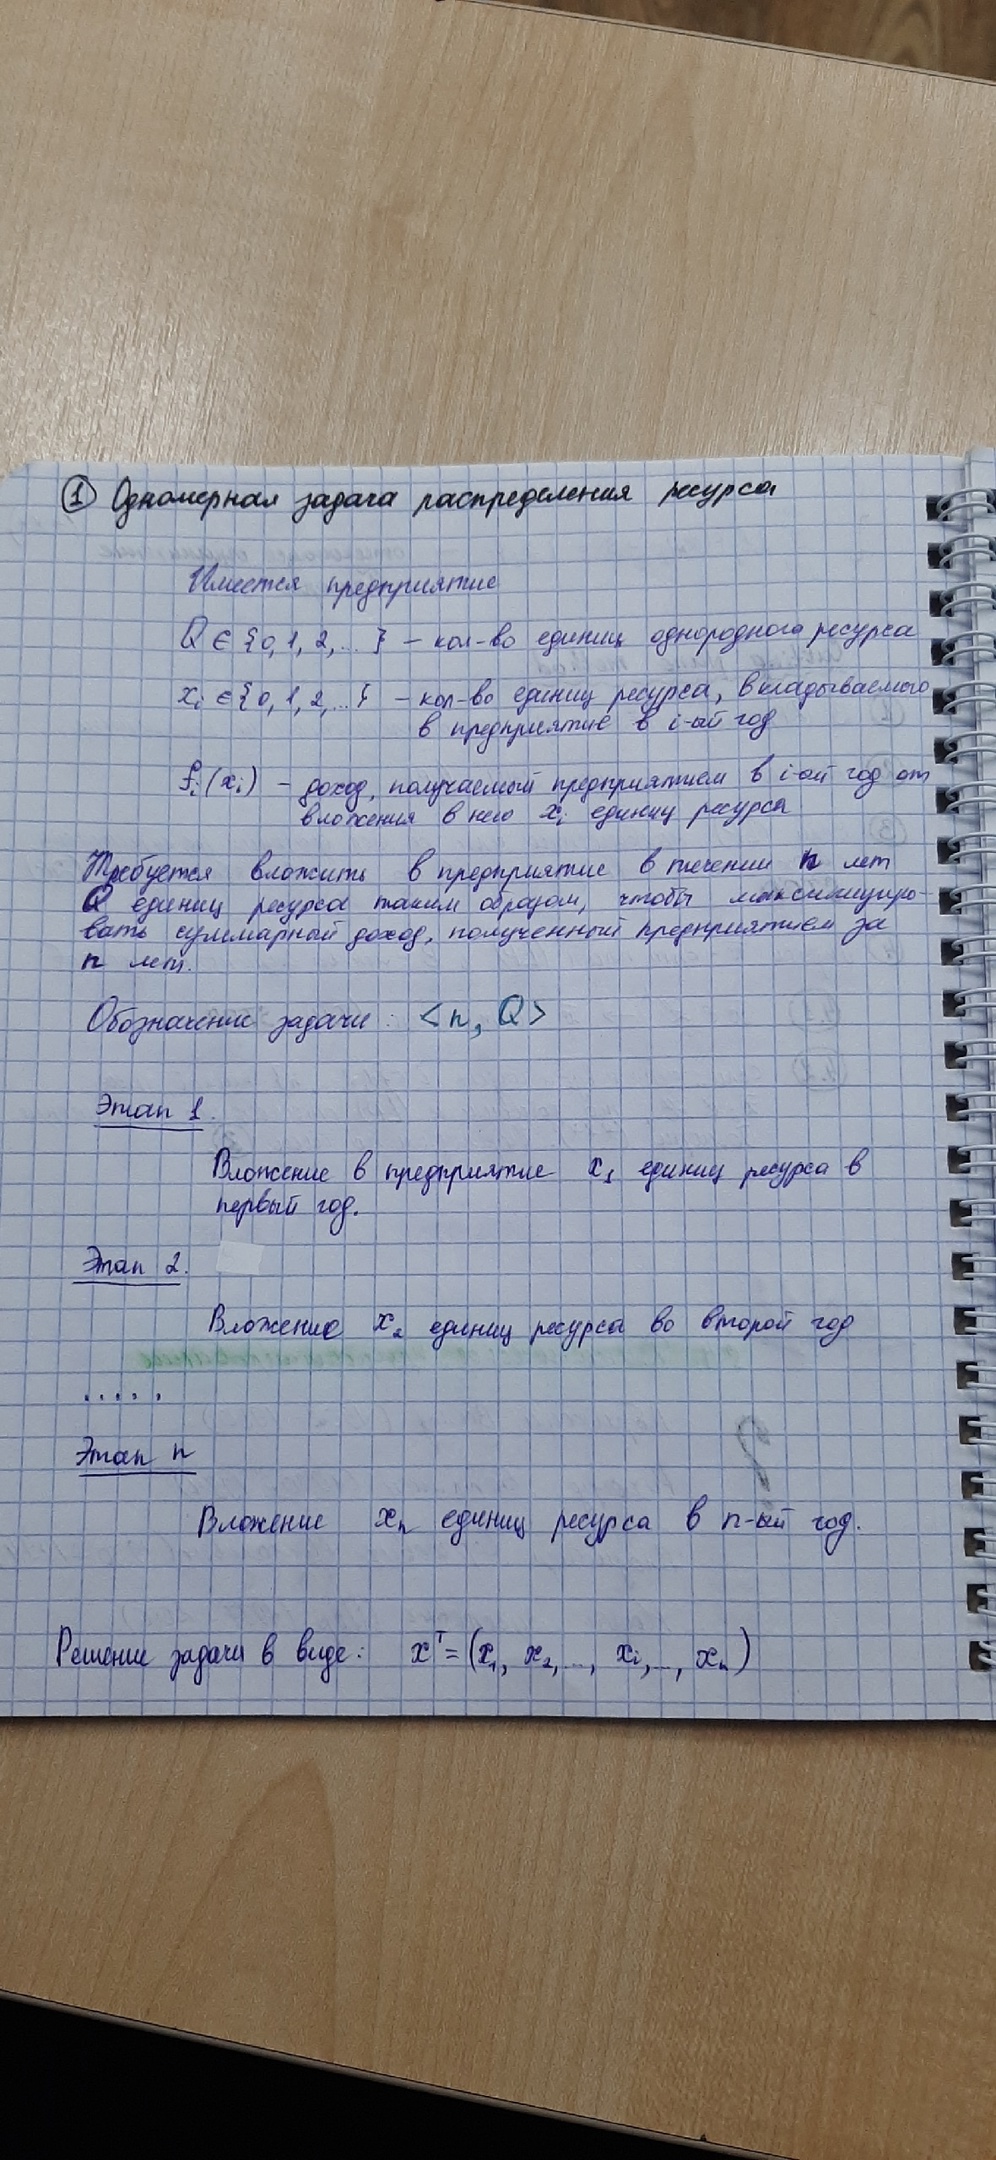 ① Одномерная задача распределения ресурса
Имеется предприятие
Q ∈ {0, 1, 2, ... } – кол-во единиц однородного ресурса
xᵢ ∈ {0, 1, 2, ...} – кол-во единиц ресурса, вкладываемого
в предприятие в i-ый год
fᵢ(xᵢ) – доход, получаемый предприятием в i-ый год от
вложения в него xᵢ единиц ресурса
Требуется вложить в предприятие в течении n лет
Q единиц ресурса таким образом, чтобы максимизиро-
вать суммарный доход, полученный предприятием за
n лет.
Обозначение задачи: <n, Q>
Этап 1.
Вложение в предприятие x₁ единиц ресурса в
первый год.
Этап 2.
Вложение x₂ единиц ресурса во второй год
.....
Этап n
Вложение xₙ единиц ресурса в n-ый год.
Решение задачи в виде: xᵀ = (x₁, x₂, ..., xᵢ, ..., xₙ)